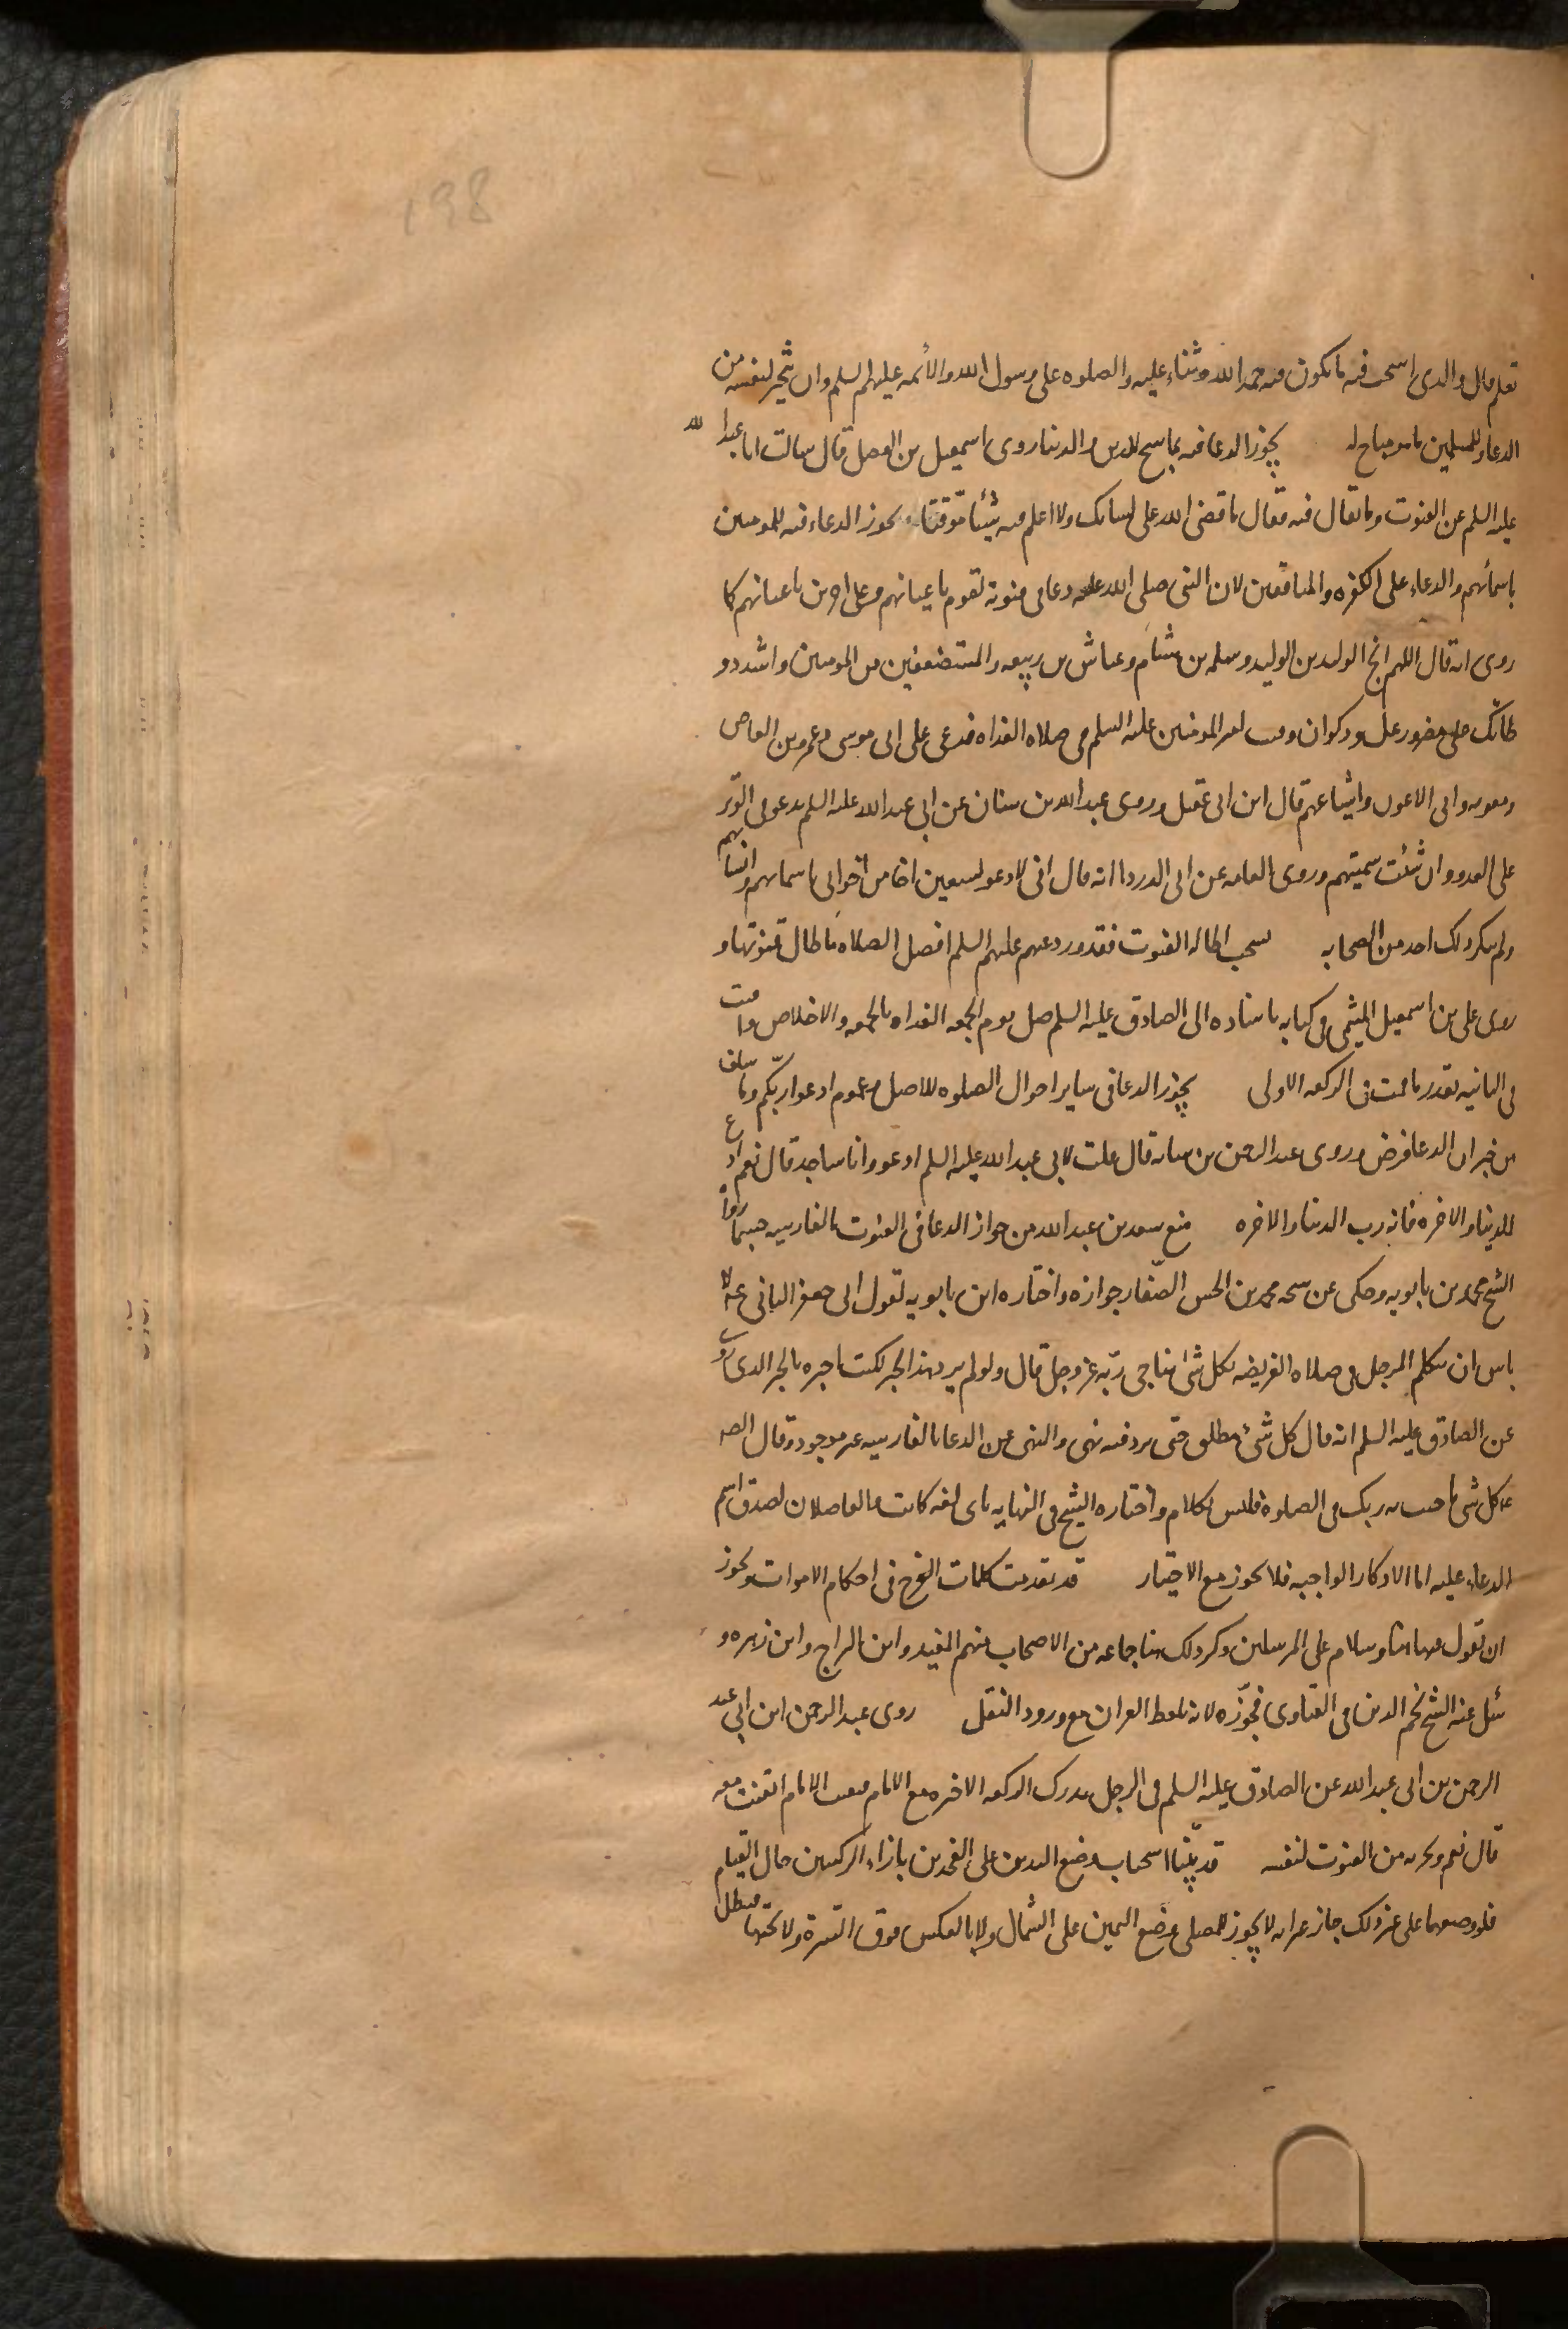 198
تعلم قال والذي استحب فيه ما يكون فيه حمد الله وثناء عليه والصلوه على رسول الله والائمه عليهم السلم وان يتخير لنفسه من
الدعاء وللمسلمين ما هو مباح له يجوز الدعا فيه بما سنح للدين والدنيا روى اسمعيل بن الفضل قال سالت ابا عبد الله
عليه السلم عن القنوت وما يقال فيه فقال ما قضى الله على لسانك ولا اعلم فيه شيئا موقتا يجوز الدعاء فيه للمومنين
باسمائهم والدعاء على الكفره والمنافقين لان النبي صلى الله عليه دعا في قنوته لقوم باعيانهم وعلى اخرين باعيانهم كما
روى انه قال اللهم انج الوليد بن الوليد وسلمه بن هشام وعياش بن ربيعه والمستضعفين من المومنين واشدد و
طاتك على مضر ورعل وذكوان وقنت امير المومنين عليه السلم في صلاه الغداه فدعى على ابى موسى وعمرو بن العاص
ومعويه وابى الاعور واشياعهم قال ابن ابى عقيل وروى عبد الله بن سنان عن ابي عبد الله عليه السلم يدعو في الوتر
على العدو وان شئت سميتهم وروى العامه عن ابى الدرداء انه قال انى لادعو لسبعين اخا من اخوانى باسمائهم وانسابهم
ولم ينكر ذلك احد من الصحابه يستحب اطاله القنوت فقد ورد عنهم عليهم السلم افضل الصلاه ما طال قنوتها و
روى على بن اسمعيل الميثمى فى كتابه باسناده الى الصادق عليه السلم صل يوم الجمعه الغداه بالجمعه والاخلاص واقنت
فى الثانيه بقدر ما قمت فى الركعه الاولى يجوز الدعا فى ساير احوال الصلوه للاصل وعموم ادعوا ربكم وما سلف
من خبر ان الدعا فرض وروى عبد الرحمن بن سيابه قال قلت لابى عبد الله عليه السلم ادعو وانا ساجد قال نعم ادع
للدنيا والاخره فانه رب الدنيا والاخره منع سعد بن عبد الله من جواز الدعا فى القنوت بالفارسيه حسبما رواه
الشيخ محمد بن بابويه وحكى عن شيخه محمد بن الحسن الصفار جوازه واختاره ابن بابويه لقول ابى جعفر الثانى ع لا
باس ان يتكلم الرجل فى صلاه الفريضه بكل شئ يناجى ربه عز وجل قال ولو لم يرد هذا الخبر لكنت اجيزه بالخبر الذى روى
عن الصادق عليه السلم انه قال كل شئ مطلق حتى يرد فيه نهى والنهى عن الدعا بالفارسيه غير موجود وقال الصـ
ع كل شئ ناجيت به ربك فى الصلوة فليس بكلام واختاره الشيخ فى النهايه باى لغه كانت والفاضلان لصدق اسم
الدعاء عليه اما الاذكار الواجبه فلا يجوز مع الاختيار قد تقدمت كلمات الفرج فى احكام الاموات ويجوز
ان تقول فيها هنا وسلام على المرسلين ذكر ذلك هنا جماعه من الاصحاب منهم المفيد وابن البراج وابن زهره و
سئل عنه الشيخ نجم الدين فى الفتاوى فجوزه لانه بلفظ القران مع ورود النقل روى عبد الرحمن ابن ابي عبد
الرحمن بن ابى عبد الله عن الصادق عليه السلم فى الرجل يدرك الركعه الاخره مع الامام فقنت الامام ايقنت معه
قال نعم ويجزيه من القنوت لنفسه قد بينا استحباب وضع اليدين على الفخذين بازاء الركبتين حال القيام
فلو وضعهما على غير ذلك جاز غير انه لا يجوز للمصلى وضع اليمين على الشمال ولا بالعكس فوق السرة ولا تحتها فتبطل